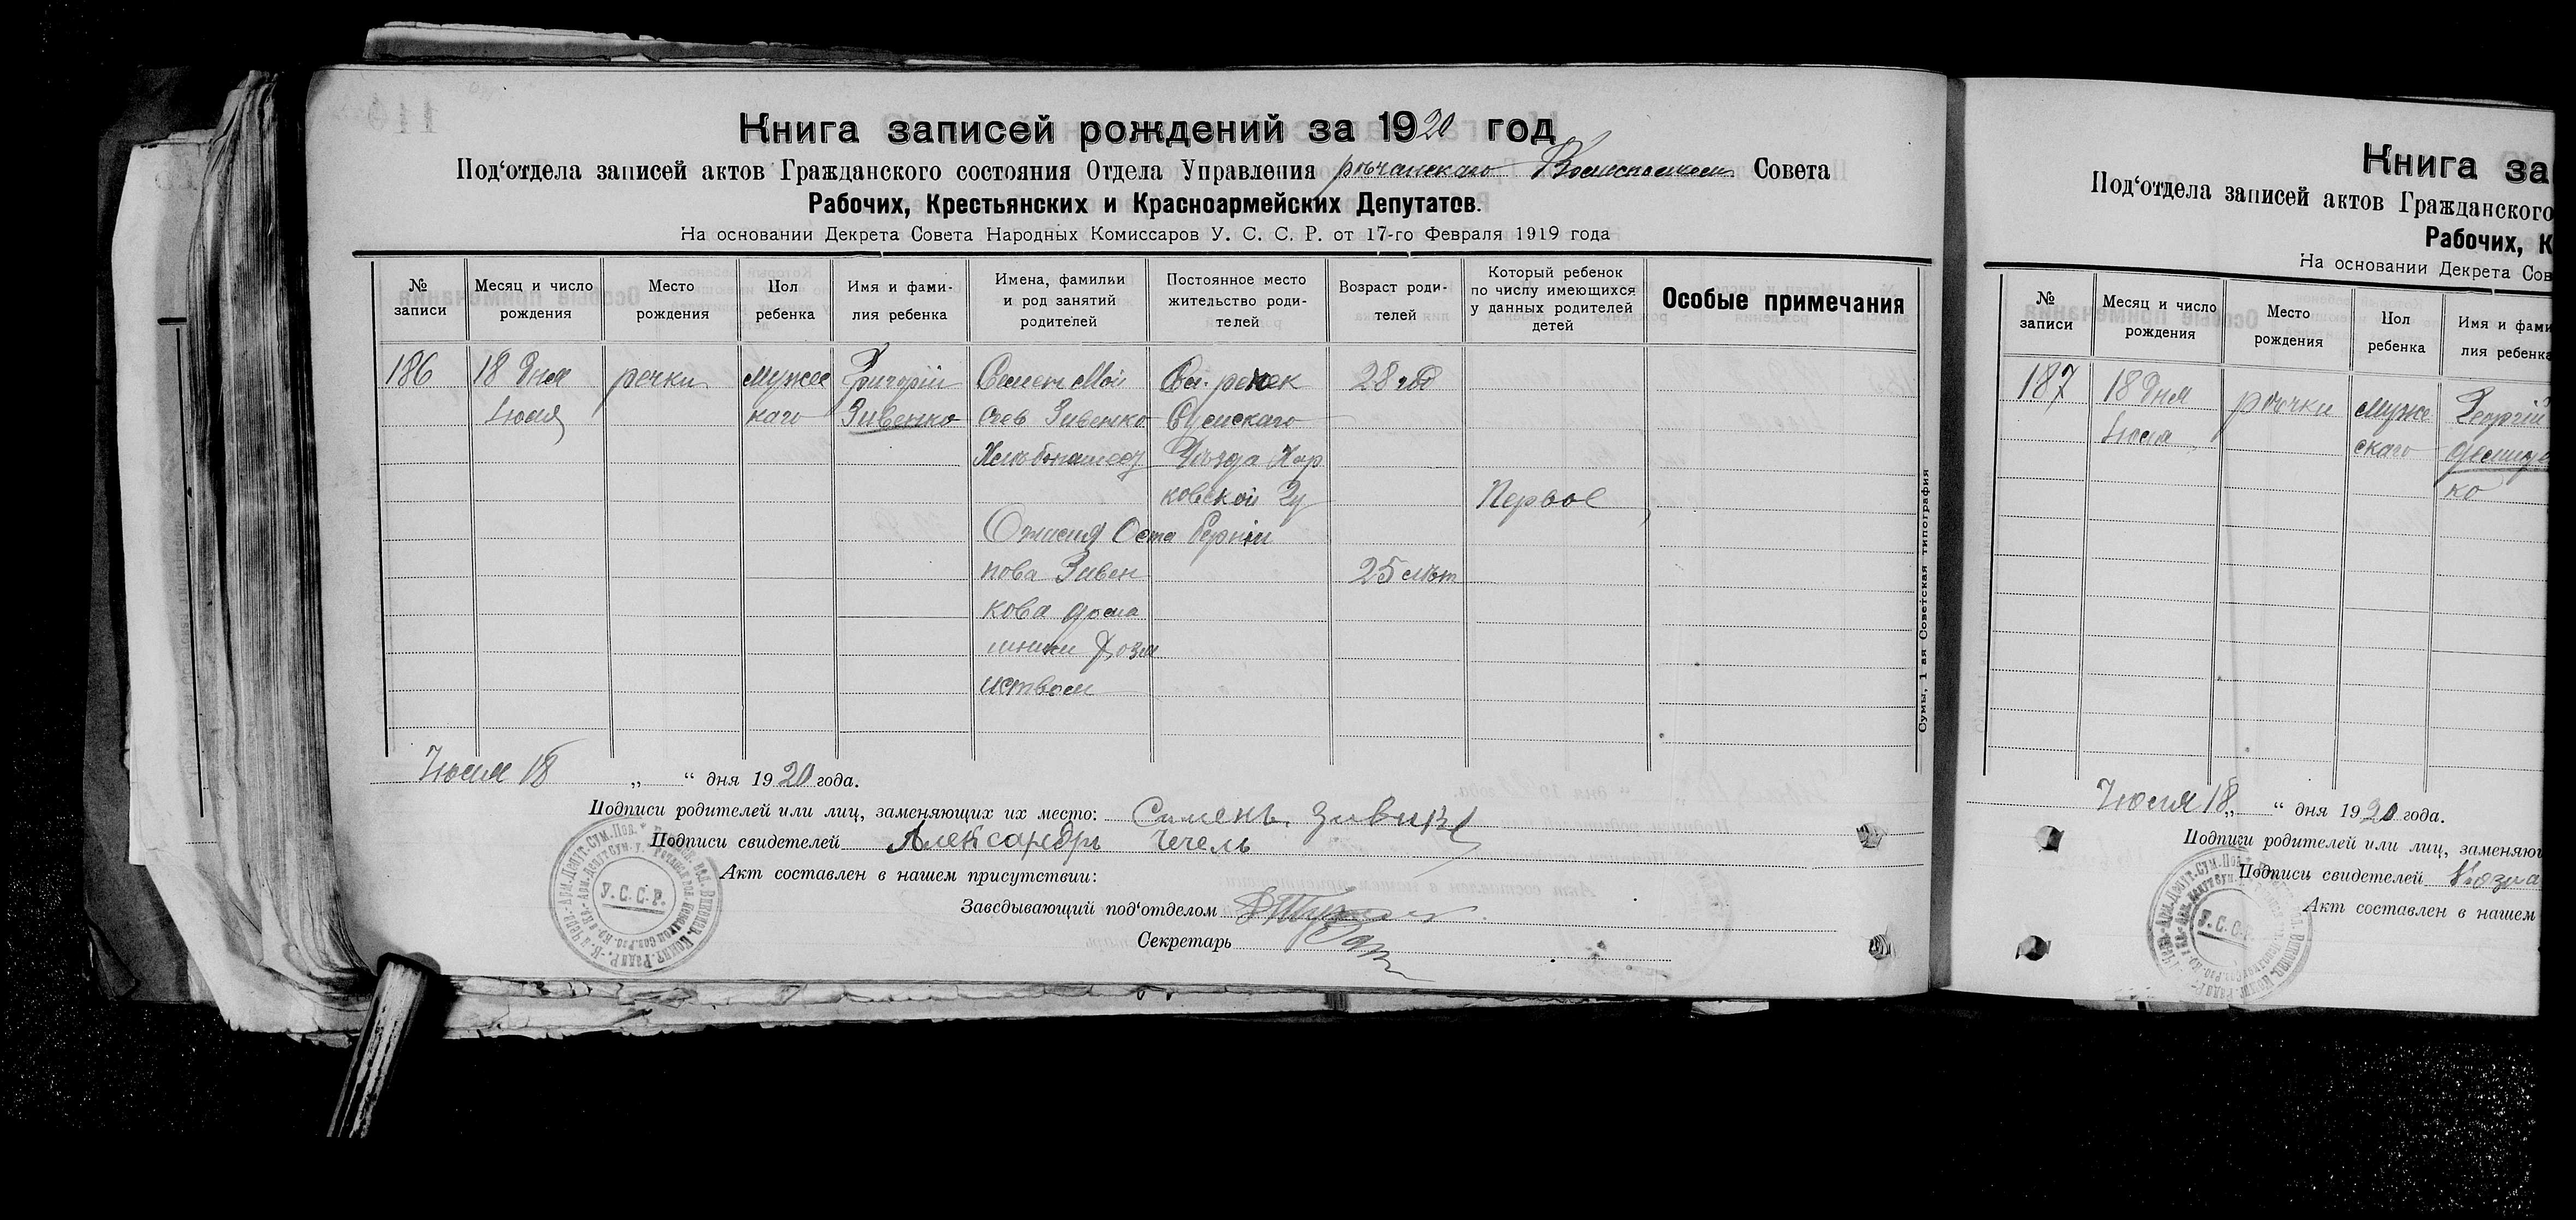 Книга записей рождений за 1920 год
Под‘отдела записей актов Гражданского состояния Отдела Управления речанскаго Совета
Рабочих, Крестьянских и Красноармейских Депутатов.
На основании Декрета Совета Народных Комиссаров У. С. С. Р. от 17-го Февраля 1919 года
№ записи
Месяц и число рождения
Место рождения
Пол ребенка
Имя и фамилия ребенка
Имена, фамилии и род занятий родителей
Постоянное место жительство родителей
Возраст родителей
Который ребенок по числу имеющихся у данных родителей детей
Особые примечания
186
18 дня
Июля
речки
мужес
каго
Григорій
Зивенко
Семен Мой
сеев Зивенко
Хлѣбопашец
Сл. речек
Сумскаго
Уѣзда Хар
ковской Гу
берніи
28 год
Первое
Оста
пова Зивен
кова дома
шним хозя
иством
25 лѣт
Июля 18 „ “ дня 1920 года.
Подписи родителей или лиц, заменяющих их место: Симень
Подписи свидетелей Александръ Чечель
Акт составлен в нашем присутствии:
Заведывающий под‘отделом
Секретарь
У.С.С.Р.
Сумы, 1 ая Советская типография
Книга за
Под‘отдела записей актов Гражданского
Рабочих, К
На основании Декрета Сов
№ записи
Месяц и число рождения
Место рождения
Пол ребенка
Имя и фами
лия ребенка
187
18 дня
Июля
речки
муже
скаго
Георгій
ко
Июля 18 „ “ дня 1920 года.
Подписи родителей или лиц, заменяющ
Подписи свидетелей Козма
Акт составлен в нашем
У.С.С.Р.